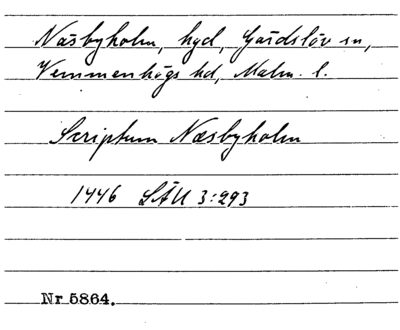 Näsbyholm, hgd, Gärdslöv sn,
Vemmenhögs hd, Malm. l.
Scriptum Næsbyholm
1446 SÄU 3:293
Nr 5864.